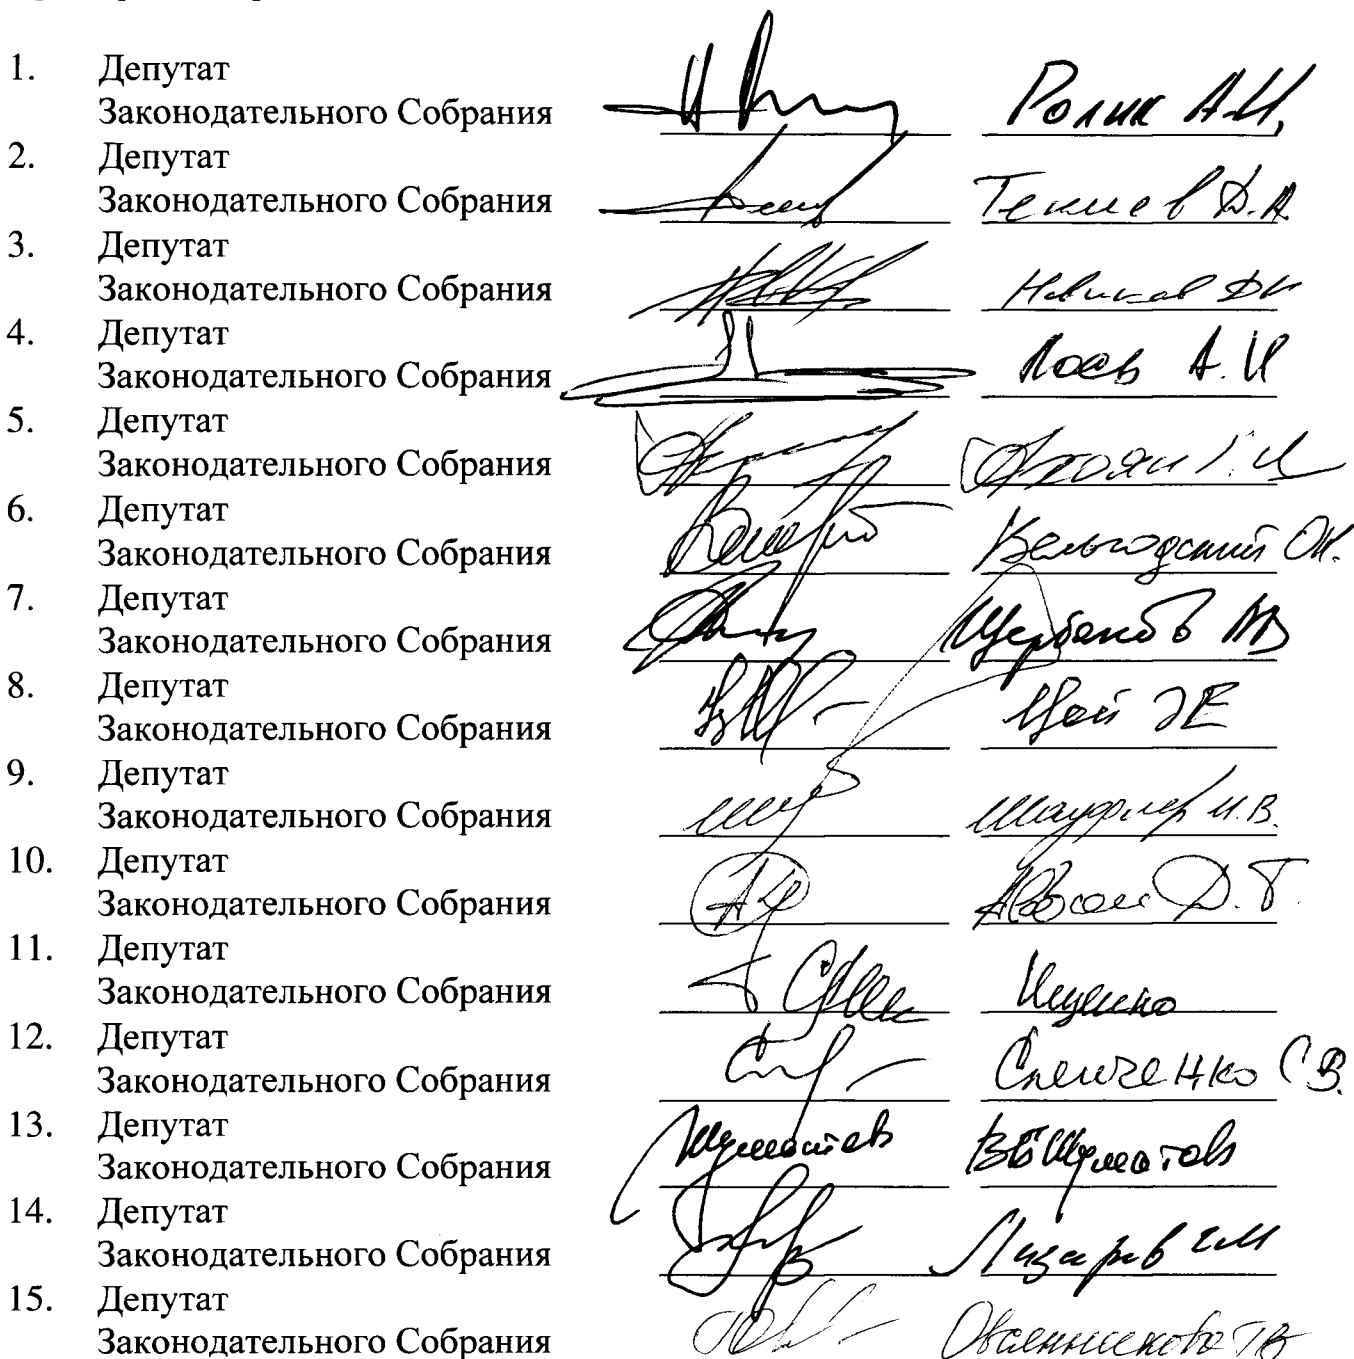 1. Депутат
Законодательного Собрания Ролик А.И.
2. Депутат
Законодательного Собрания Текиев Д.А.
3. Депутат
Законодательного Собрания Новиков ДН
4. Депутат
Законодательного Собрания Лосев А.И
5. Депутат
Законодательного Собрания
6. Депутат
Законодательного Собрания
7. Депутат
Законодательного Собрания Щербаков АВ
8. Депутат
Законодательного Собрания Цой ЭЕ
9. Депутат
Законодательного Собрания Шауфлер И.В.
10. Депутат
Законодательного Собрания Д.Т.
11. Депутат
Законодательного Собрания Ищенко
12. Депутат
Законодательного Собрания Слепченко С В.
13. Депутат
Законодательного Собрания Шуматов ВБ Шуматов
14. Депутат
Законодательного Собрания Лазарев ГМ
15. Депутат
Законодательного Собрания Овсянникова ТВ